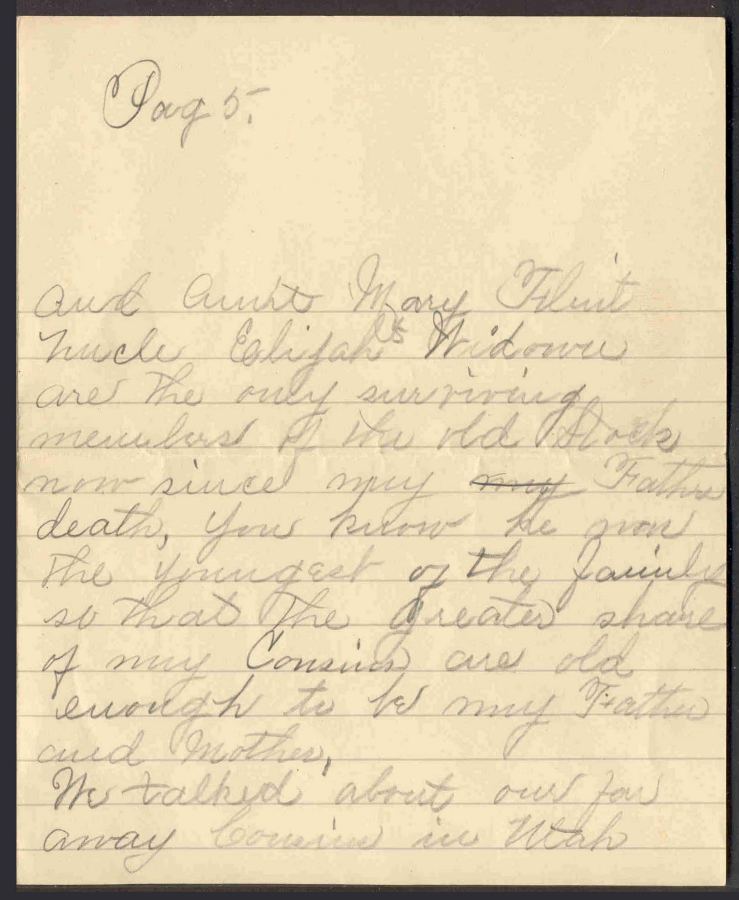 Pag 5.
and Aunt Mary Flint
Uncle Elijah's Widow
are the only surviving
members of the old Stock
now since my my Father
death, you know he was
the youngest of the family
so that the greater share
of my Cousins are old
enough to be my Father
and Mother,
We talked about our far
away Cousins in Utah